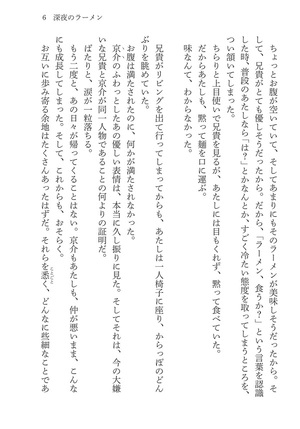 6 深夜のラーメン
ちょっとお腹が空いていて、そしてあまりにもそのラーメンが美味しそうだったから。そ
して、兄貴がとても優しそうだったから。だから、「ラーメン、食うか？」という言葉を認識
した時、普段のあたしなら「は？」とかなんとか、すごく冷たい態度を取ってしまうところを、
つい頷いてしまった。
ちらりと上目使いで兄貴を見るが、あたしには目もくれず、黙って食べていた。
だからあたしも、黙って麺を口に運ぶ。
味なんて、わからなかった。
兄貴がリビングを出て行ってしまってからも、あたしは一人椅子に座り、からっぽのどん
ぶりを眺めていた。
お腹は満たされたのに、何かが満たされなかった。
京介がふわっとしたあの優しい表情は、本当に久し振りに見た。そしてそれは、今の大嫌
いな兄貴と京介が同一人物であることの何よりの証明だ。
ぽたりと、涙が一粒落ちる。
もう二度と、あの日々が帰ってくることはない。京介もあたしも、仲が悪いまま、こんな
にも成長してしまった。そして、これからも、おそらく。
お互いに歩み寄る余地はたくさんあったはずだ。それらを悉く、どんなに些細なことであ